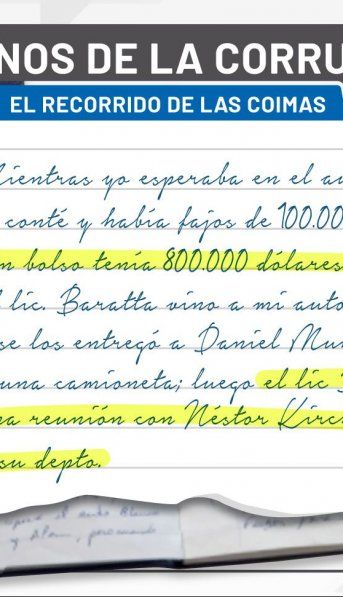 NOS DE LA CORRU
EL RECORRIDO DE LAS COIMAS
Mientras yo esperaba en el au
conté y había fajos de 100.00
n bolso tenía 800.000 dólares
l lic. Baratta vino a mi auto
se los entregó a Daniel Mu
una camioneta; luego el lic
a reunión con Néstor Kirc
su depto.